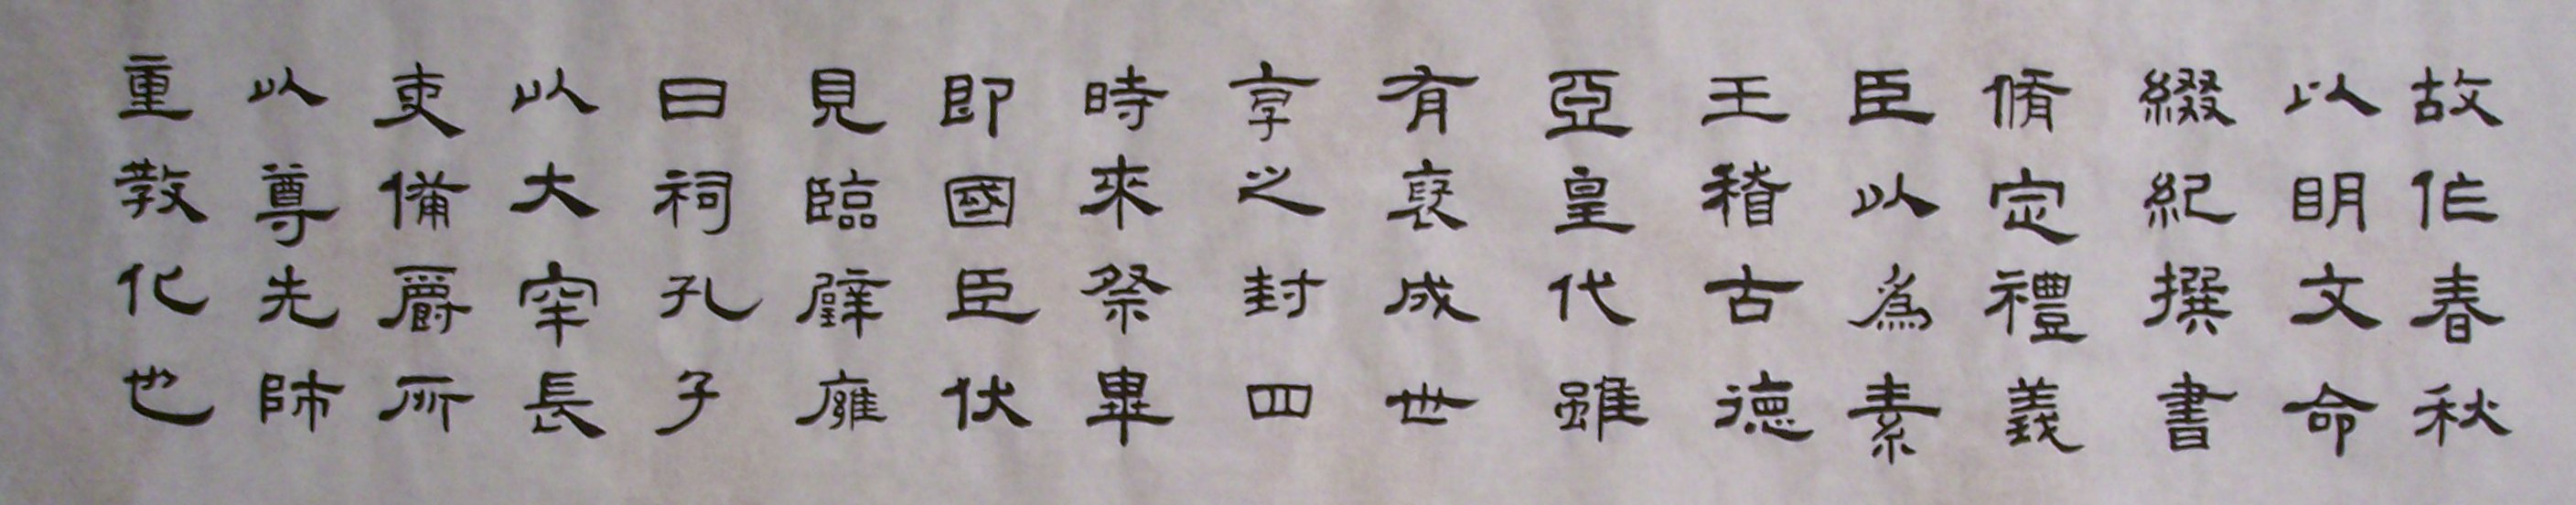 故作春秋
以明文命
綴紀撰書
脩定禮義
臣以為素
王稽古德
亞皇代雖
有褒成世
享之封四
時來祭畢
即國臣伏
見臨辟雍
日祠孔子
以大牢長
吏備爵所
以尊先師
重教化也